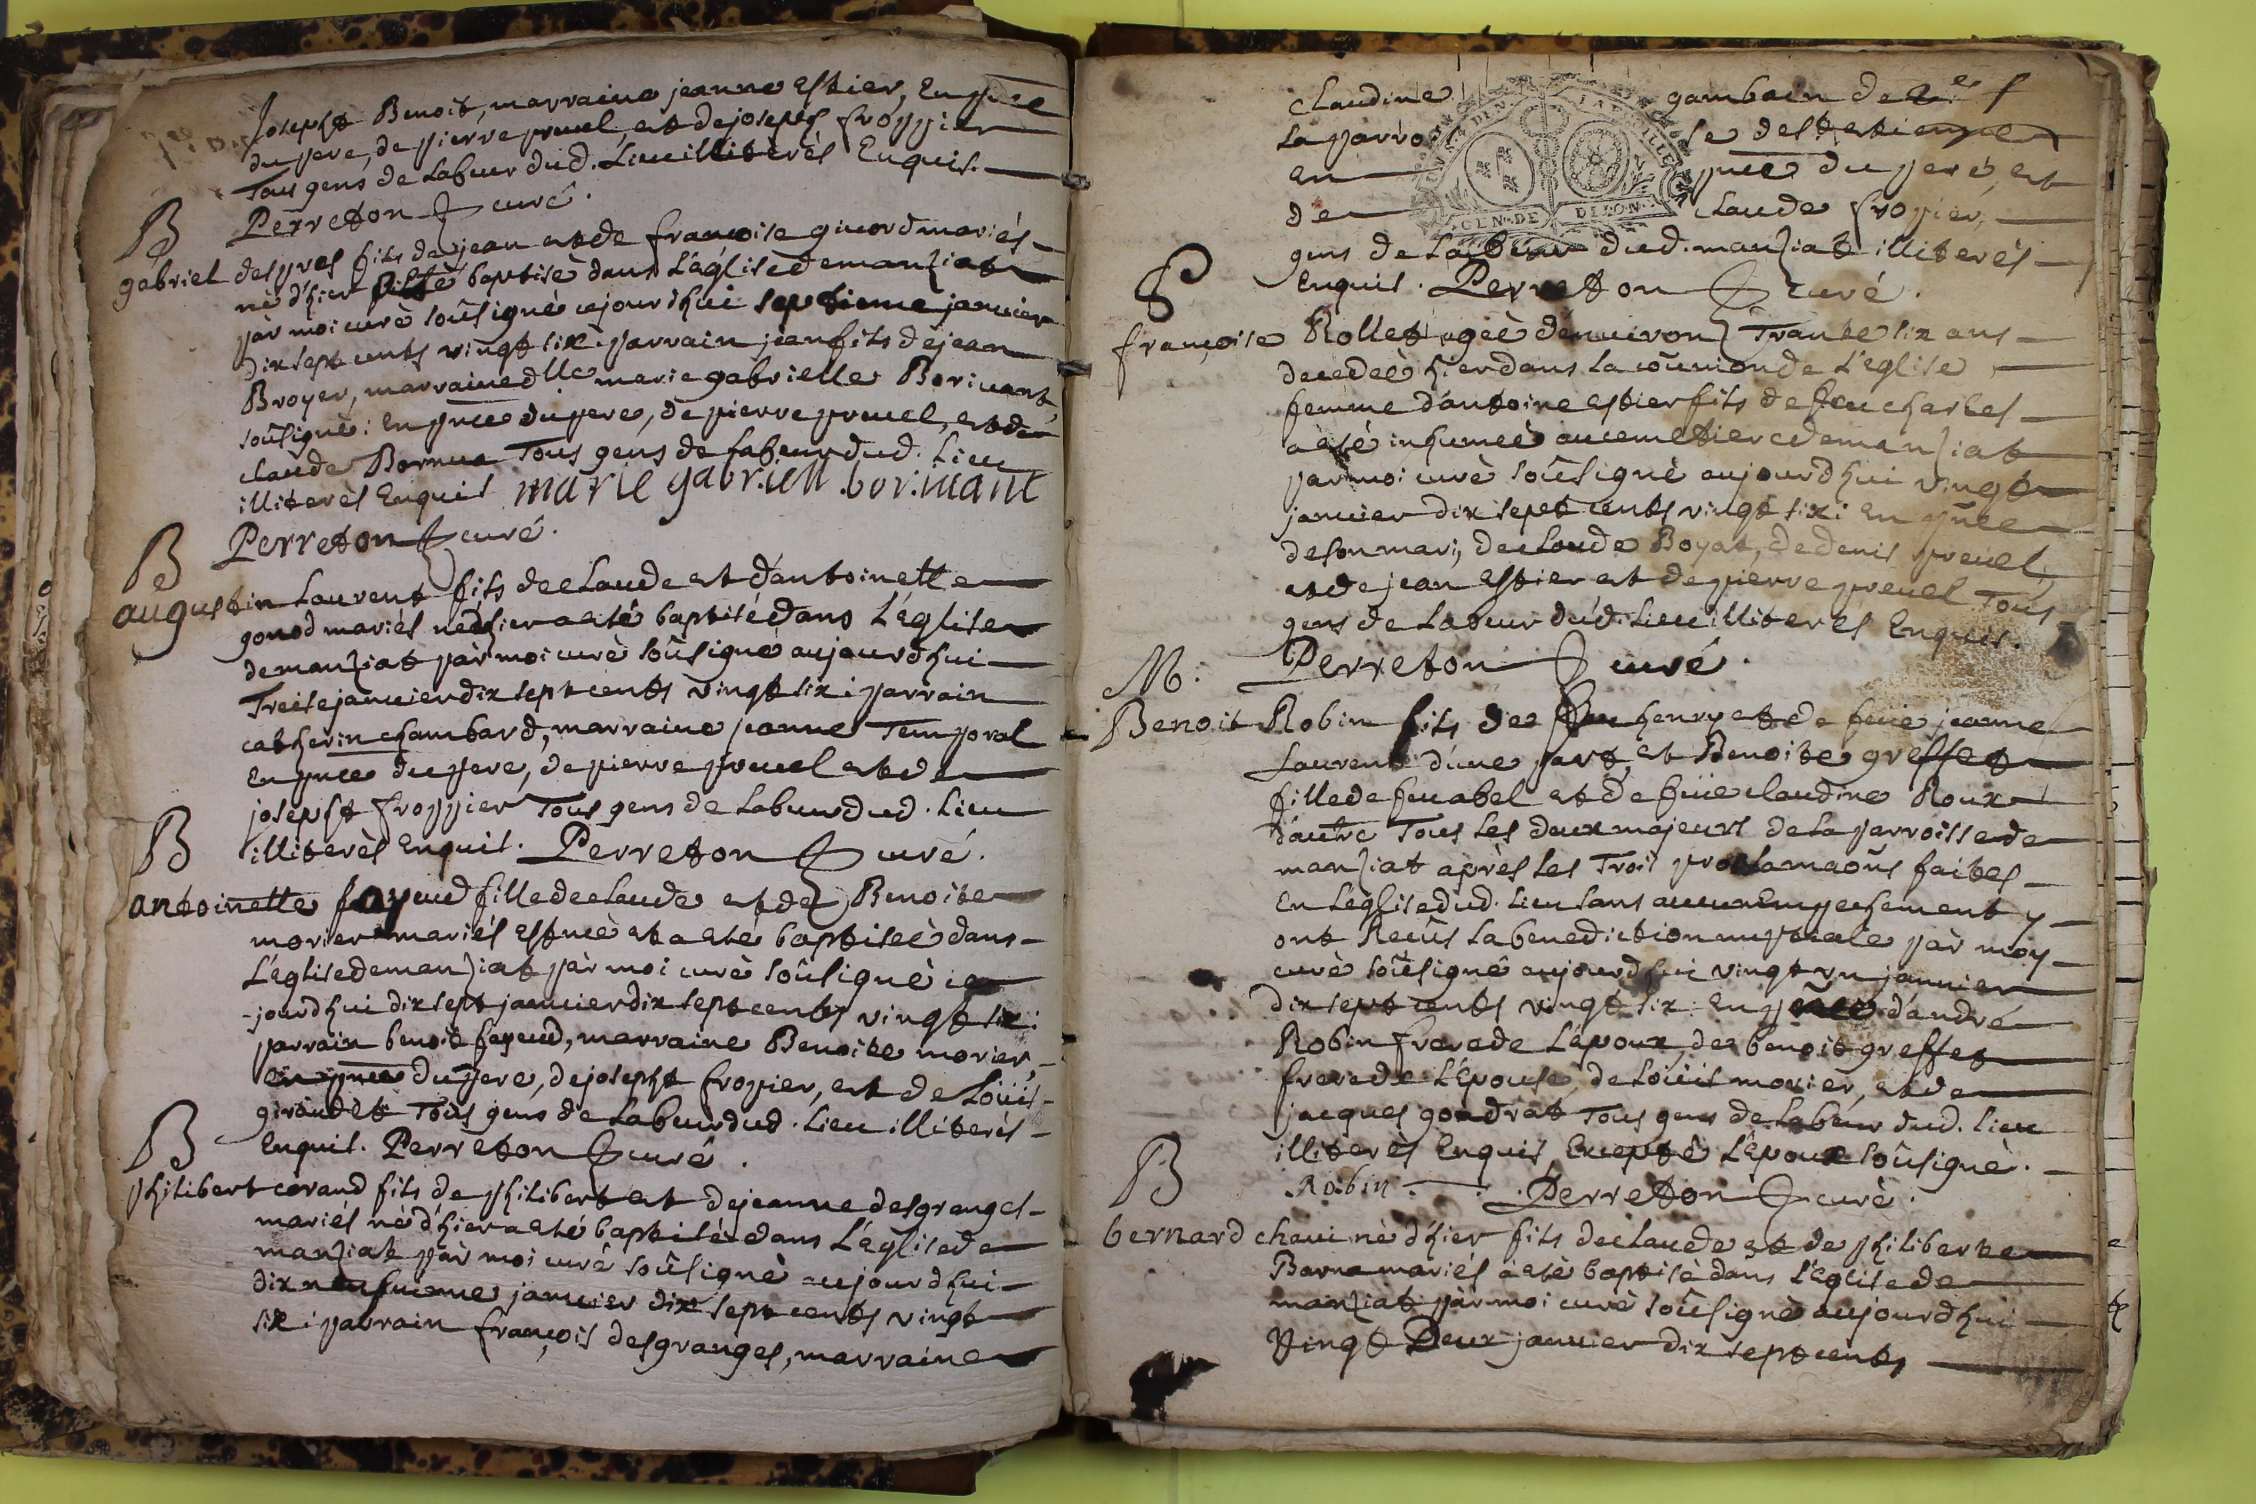 Josepht Benoit, marraine jeanne Estier, En pnce
du pere, de pierre pruel et de joseph froppier
Tous gens de Labeur dud. Lieu illiterés Enquis.
Perreton curé.
B
gabriel despres fils de jean et de francoise guiord mariés
né d'hier baptisé dans L'église de manziat
par moi curé soûsigné cejourdhui septieme janvier
dix sept cents vingt six: parrain jean fils de jean
Broyer, marraine dlle marie gabrielle Borivant,
soûsigné: En pnce du pere, de pierre pruel, et de
claude Bornua Tous gens de Labeur dud. Lieu
illiterés Enquis marie gabriell borivant
Perreton curé.
B
augustin Laurent fils de claude et d'antoinette
gonod mariés né d'hier a eté baptisé dans L'église
de manziat par moi curé soûsigné aujourdhui
Treise janvier dix sept cents vingt six: parrain
catherin chambard, marraine jeanne Temporal
En pnce du pere, de pierre pruel et de
josepht froppier Tous gens de Labeur dud. Lieu
illiterés Enquis. Perreton curé.
B
antoinette fayeud fille de claude et de Benoite
morier mariés est née et a eté baptiseé dans
L'église de manziat par moi curé soûsigné ce
jourdhui dix sept janvier dix sept cents vingt six:
parrain benoit fayeud, marraine Benoite morier,
en pnce du pere, de josepht fropier, et de Loüis
giraudet Tous gens de Labeur dud. Lieu illiterés
Enquis. Perreton curé.
B
philibert corand fils de philibert et de jeanne desgranges
mariés né d'hier a eté baptisé dans L'église de
manziat par moi curé soûsigné aujourdhui
dix neufvieme janvier dix sept cents vingt
six: parrain françois desgranges, marraine
claudine gambain de
La parroisse de
en pnce du pere, et
de claude fropier,
gens de Labeur dud. manziat illiterés
Enquis. Perreton curé.
GEN. DE DIJON
françoise Rollet ageé d'environ Trante six ans
decedeé hier dans La coûmion de L'eglise
femme d'antoine estier fils de feu charles
a eté inhumeé au cemetier de manziat
par moi curé soûsigné aujourdhui vingt
janvier dix sept cents vingt six: En pnce
de son mari, de claude Boyat, de denis pruel,
et de jean estier et de pierre pruel Tous
gens de Labeur dud. Lieu illiterés Enquis.
Perreton curé.
M:
Benoit Robin fils de feu henry et de feüe jeanne
Laurent d'une part, et Benoite greffet
fille de feu abel et de feüe claudine Roux
d'autre Tous Les deux majeurs de La parroisse de
manziat après Les Trois proclamaôns faites
En L'eglise dud. Lieu sans aucun Empechement y
ont Recûs La benediction nuptiale par moy
curé soûsigné aujourdhui vingt un janvier
dix sept cents vingt six: En pnce d'andré
Robin frere de L'epoux, de benoit greffet
frere de L'Epouse, de Loüis morier, et de
jacques gondrat Tous gens de Labeur dud. Lieu
illiterés Enquis Excepté L'epoux soûsigné.
Robin. Perreton curé.
B
bernard chaui né d'hier fils de claude et de philiberte
Barna mariés a eté baptisé dans L'Eglise de
manziat par moi curé soûsigné aujourdhui
Vingt Deux janvier dix sept cents